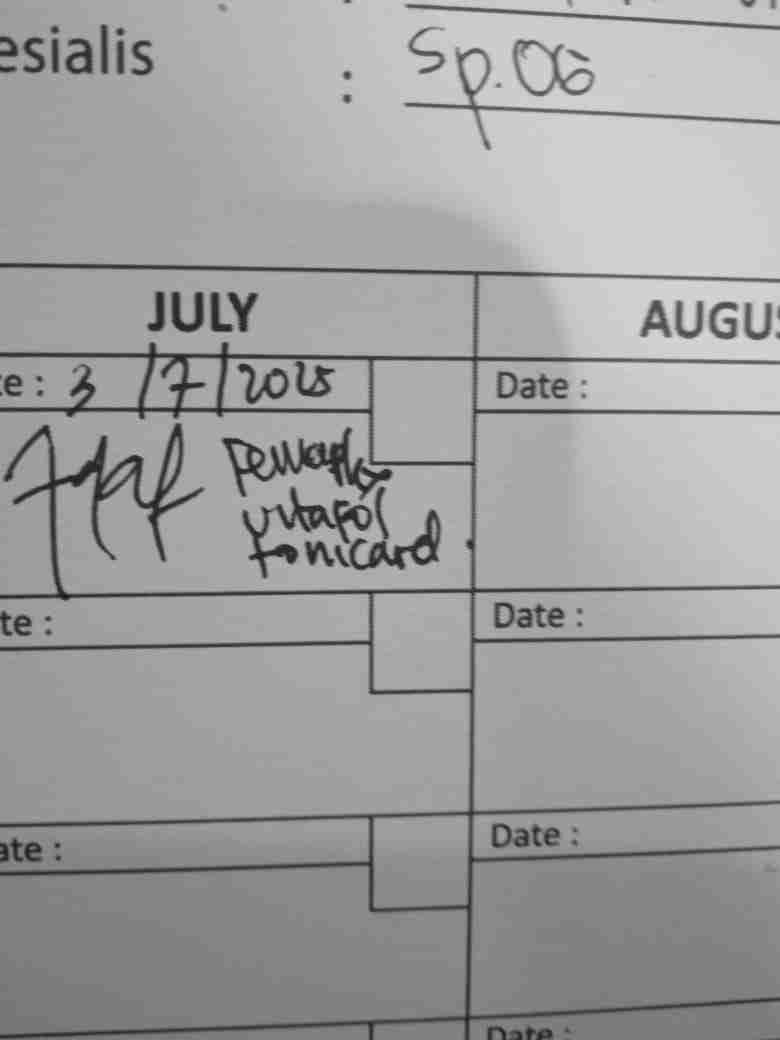 esialis : Sp.OG
JULY AUGUS
te : 3 /7/2025 Date :
vitafol
tonicard
te : Date :
ate : Date :
Date :